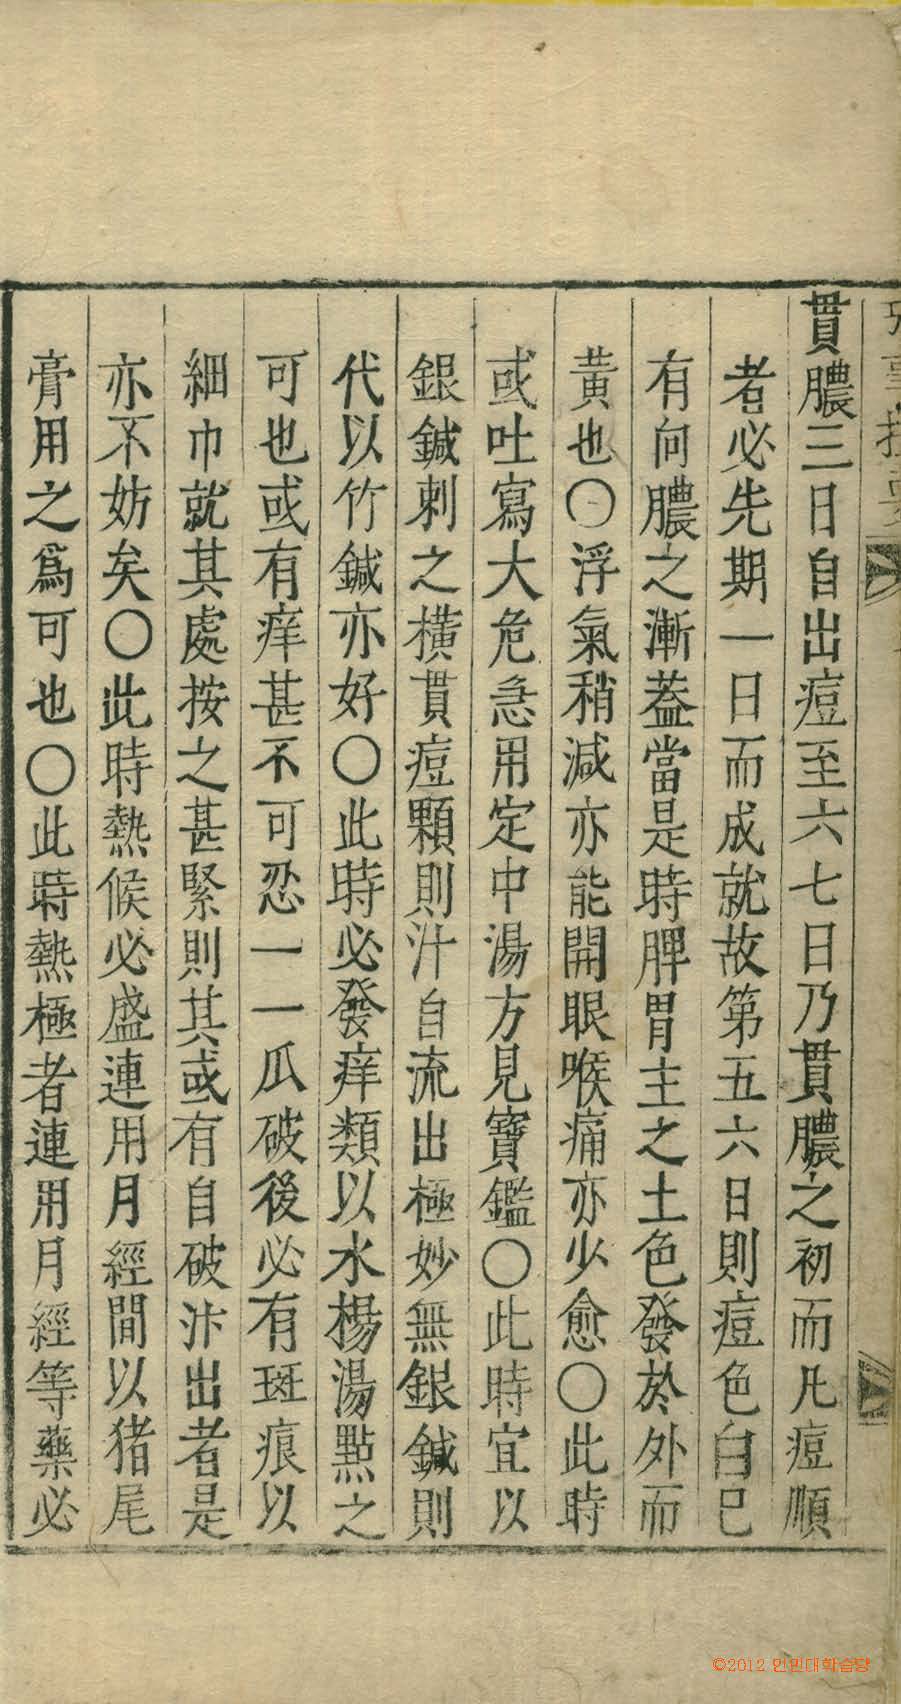 貫膿三日自出痘至六七日乃貫膿之初而凡痘順
者必先期一日而成就故第五六日則痘色白已
有向膿之漸蓋當是時脾胃主之土色發於外而
黃也〇浮氣稍減亦能開眼喉痛亦少愈〇此時
或吐寫大危急用定中湯方見寶鑑〇此時宜以
銀鍼刺之橫貫痘顆則汁自流出極妙無銀鍼則
代以竹鍼亦好〇此時必發痒類以水楊湯點之
可也或有痒甚不可忍一一瓜破後必有斑痕以
細巾就其處按之甚緊則其或有自破汁出者是
亦不妨矣〇此時熱候必盛連用月經間以猪尾
膏用之爲可也〇此時熱極者連用月經等藥必
©2012 인민대학습당